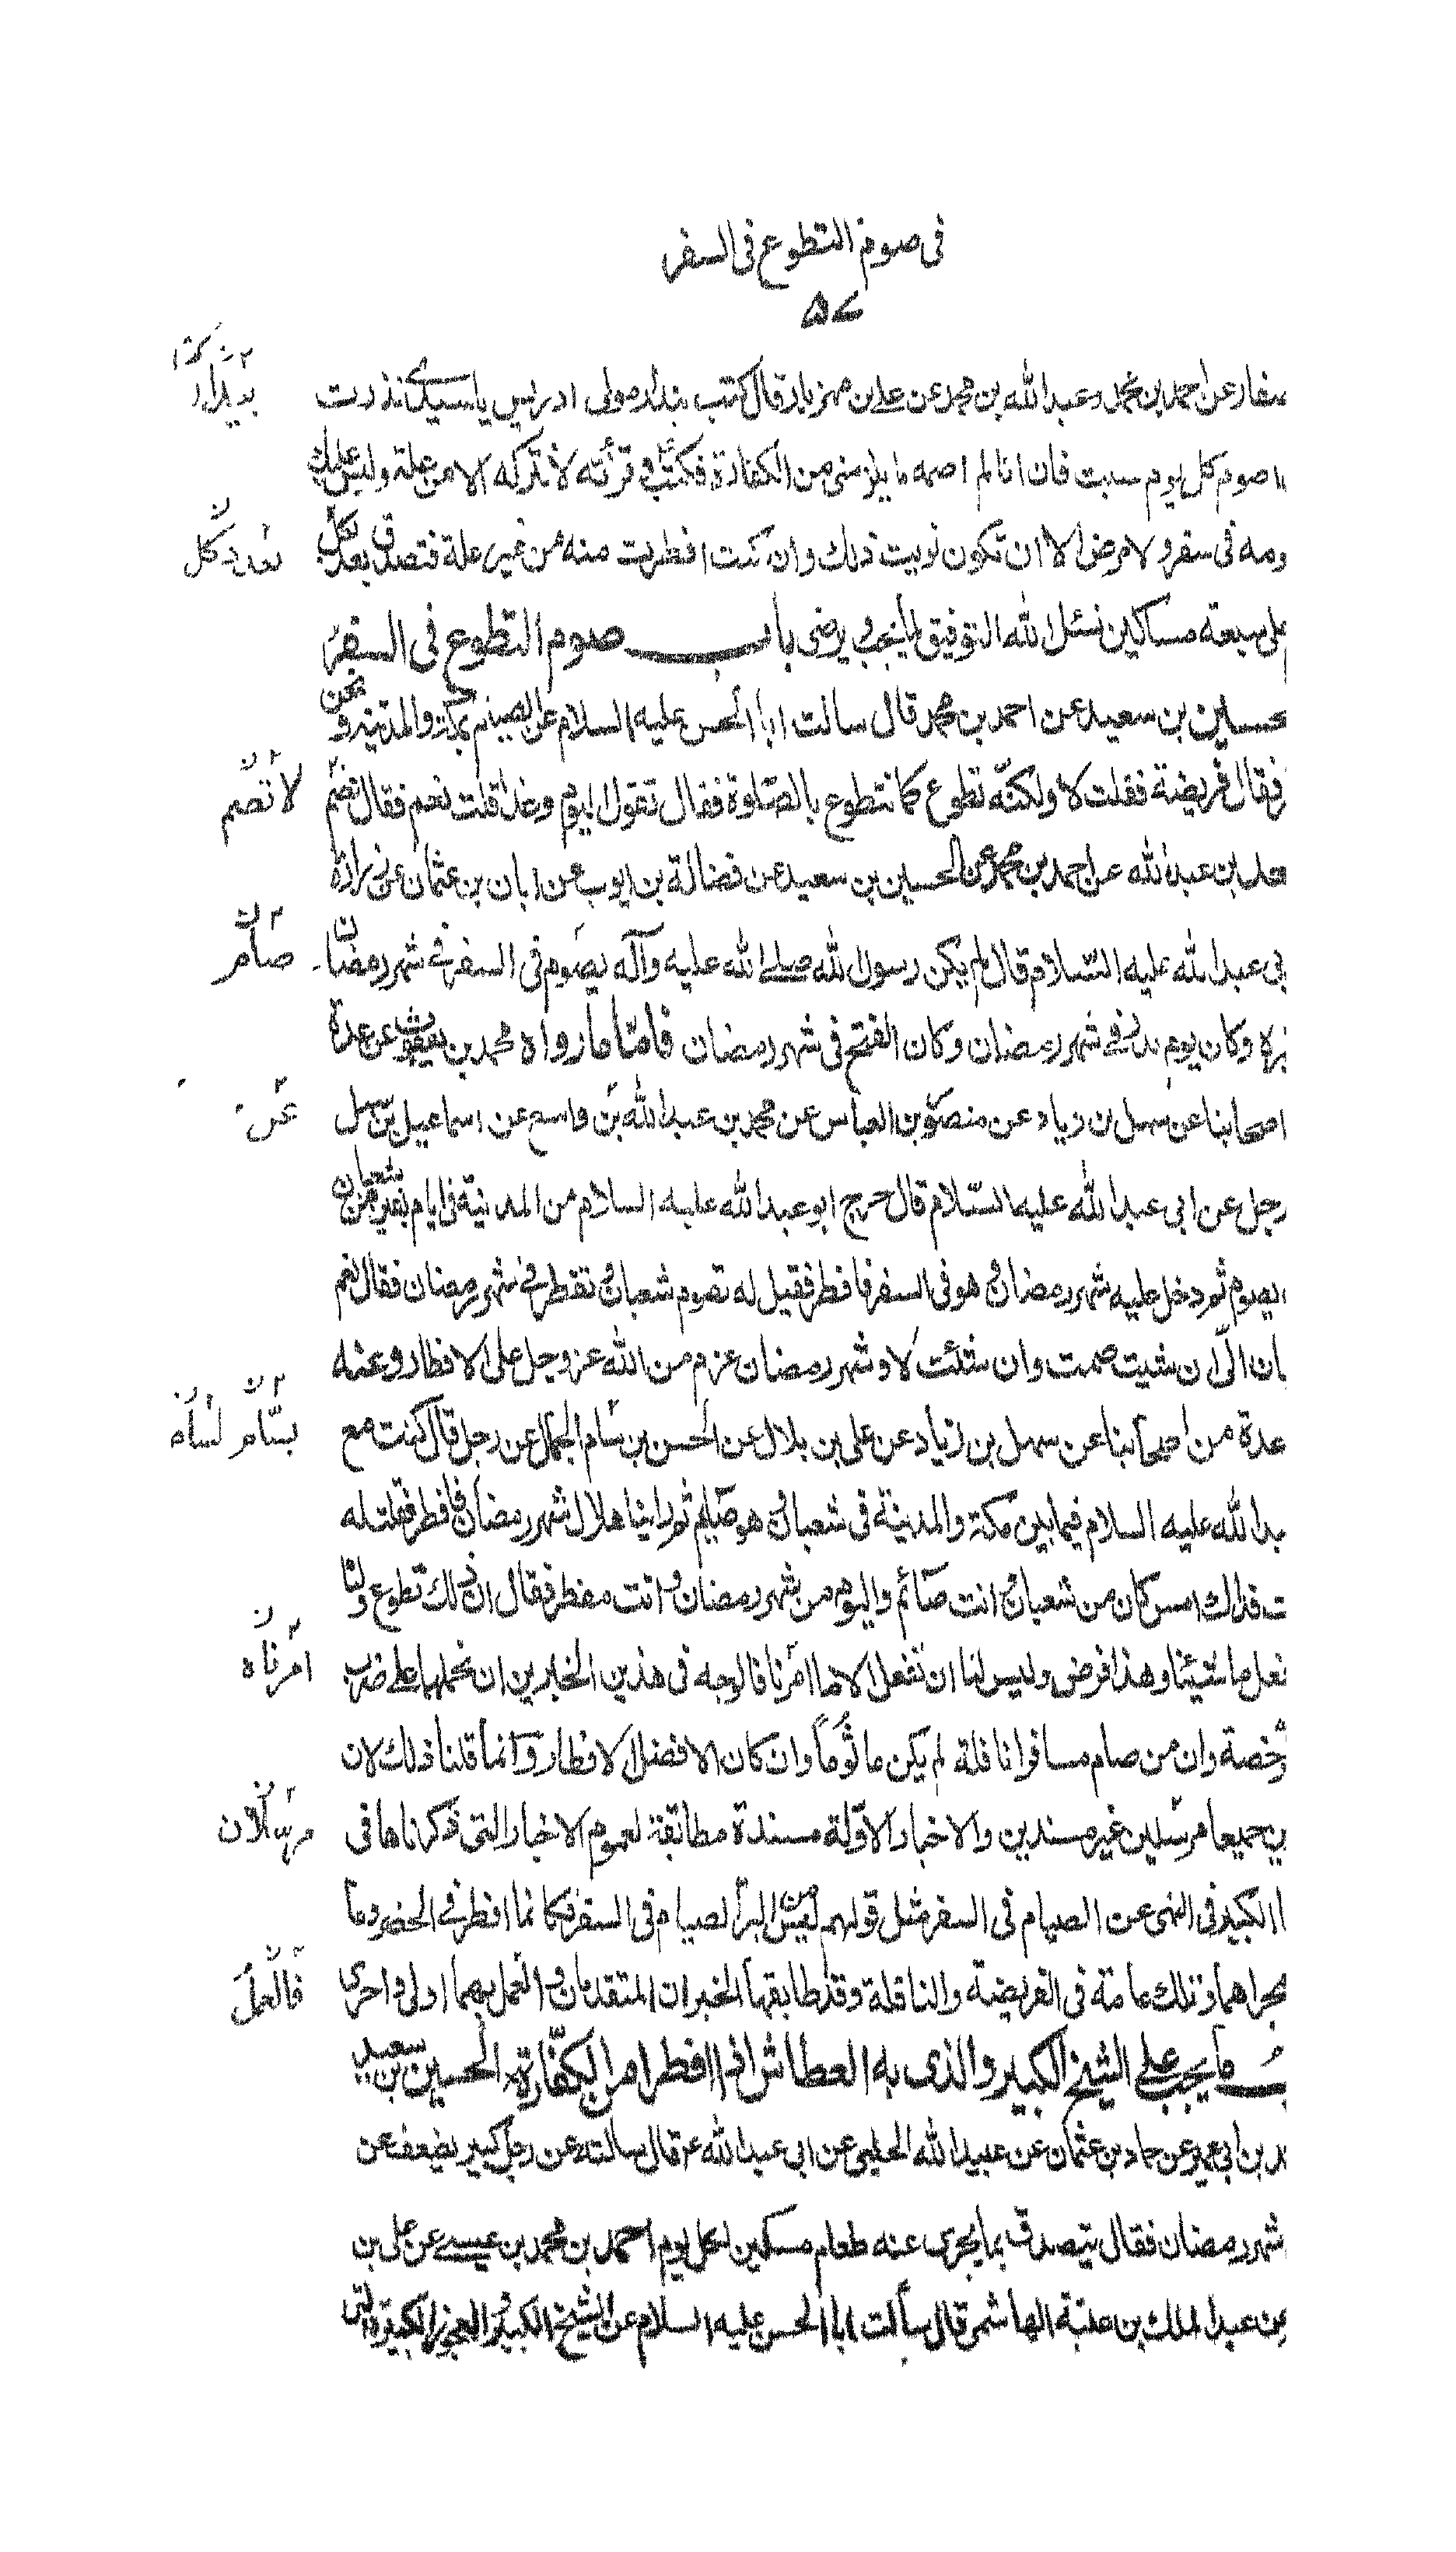 فى صوم التطوع فى السفر
۵۷
صفار عن احمد بن محمد وعبد الله بن محمد عن على بن مهزيار قال كتب بندار مولى ادريس يا سيدى نذرت
ان اصوم كل يوم سبت فان انا لم اصمه ما يلزمنى من الكفارة فكتب و قرأته لا تتركه الا من علة وليس عليك
ومه فى سفر ولا مرض الا ان تكون نويت ذلك وان كنت افطرت منه من غير علة فتصدق بعدد كل
على سبعة مساكين نسئل الله التوفيق لما يحب و يرضى باب صوم التطوع فى السفر
لحسين بن سعيد عن احمد بن محمد قال سالت ابا الحسن عليه السلام عن الصيام بمكة والمدينة ونحن
فقال فريضة فقلت لا ولكنّه تطوع كما نتطوع بالصّلوة فقال تقول اليوم وغدا قلت نعم فقال لا تصم
سعد بن عبد الله عن احمد بن محمد عن الحسين بن سعيد عن فضالة بن ايوب عن ابان بن عثمان عن زرارة
بى عبد الله عليه السّلام قال لم يكن رسول الله صلى الله عليه وآله يصوم فى السفر فى شهر رمضان
غيره وكان يوم بدر فى شهر رمضان وكان الفتح فى شهر رمضان فامّا ما رواه محمد بن يعقوب عن عدة
اصحابنا عن سهل بن زياد عن منصور بن العباس عن محمد بن عبد الله بن واسع عن اسماعيل بن سهل
رجل عن ابى عبد الله عليه السّلام قال خرج ابو عبد الله عليه السلام من المدينة فى ايام بقين من شعبان
يصوم ثم دخل عليه شهر رمضان و هو فى السفر فافطر فقيل له تصوم شعبان و تفطر فى شهر رمضان فقال نعم
بان الىّ ان شيت صمت وان شئت لا وشهر رمضان عزم من الله عز وجل على الافطار وعنه
عدة من اصحابنا عن سهل بن زياد عن على بن بلال عن الحسن بن بسّام الجمال عن رجل قال كنت مع
بد الله عليه السلام فيما بين مكة والمدينة فى شعبان و هو صايم ثم راينا هلال شهر رمضان فافطر فقلت له
ت فداك امس كان من شعبان و انت صائم واليوم من شهر رمضان و انت مفطر فقال ان ذلك تطوع ولنا
نفعل ما شيئنا وهذا فرض وليس لنا ان نفعل الا ما امرنا فالوجه فى هذين الخبرين ان نحملهما على ضرب
رخصة وان من صام مسافرا نافلة لم يكن ماثوماً وان كان الافضل الافطار وانما قلنا ذلك لان
ين جميعا مرسلين غير مسندين والاخبار الاوّلة مسندة مطابقة لعموم الاخبار التى ذكرناها فى
ا الكبير فى النهى عن الصيام فى السفر مثل قولهم ليس من البر الصيام فى السفر وكانما افطر فى الحضر وما
مجراهما وتلك عامة فى الفريضة والنافلة وقد طابقها الخبران المتقدمان و العمل بهما اولى واحرى
ب ما يجب على الشيخ الكبير والذى به العطاش اذا افطرا من الكفّارة الحسين بن سعيد
د بن ابى عمير عن حماد بن عثمان عن عبيد الله الحلبى عن ابى عبد الله ع قال سالته عن رجل كبير يضعف عن
شهر رمضان فقال يتصدق بما يجزى عنه طعام مسكين لكل يوم احمد بن محمد بن عيسى عن على بن
عن عبد الملك بن عتبة الهاشمى قال سألت ابا الحسن عليه السلام عن الشيخ الكبير و العجوز الكبيرة التى
بعدد كل
لا تصم
صام
عن
بسّام
امرناه
مرسلان
فالعمل